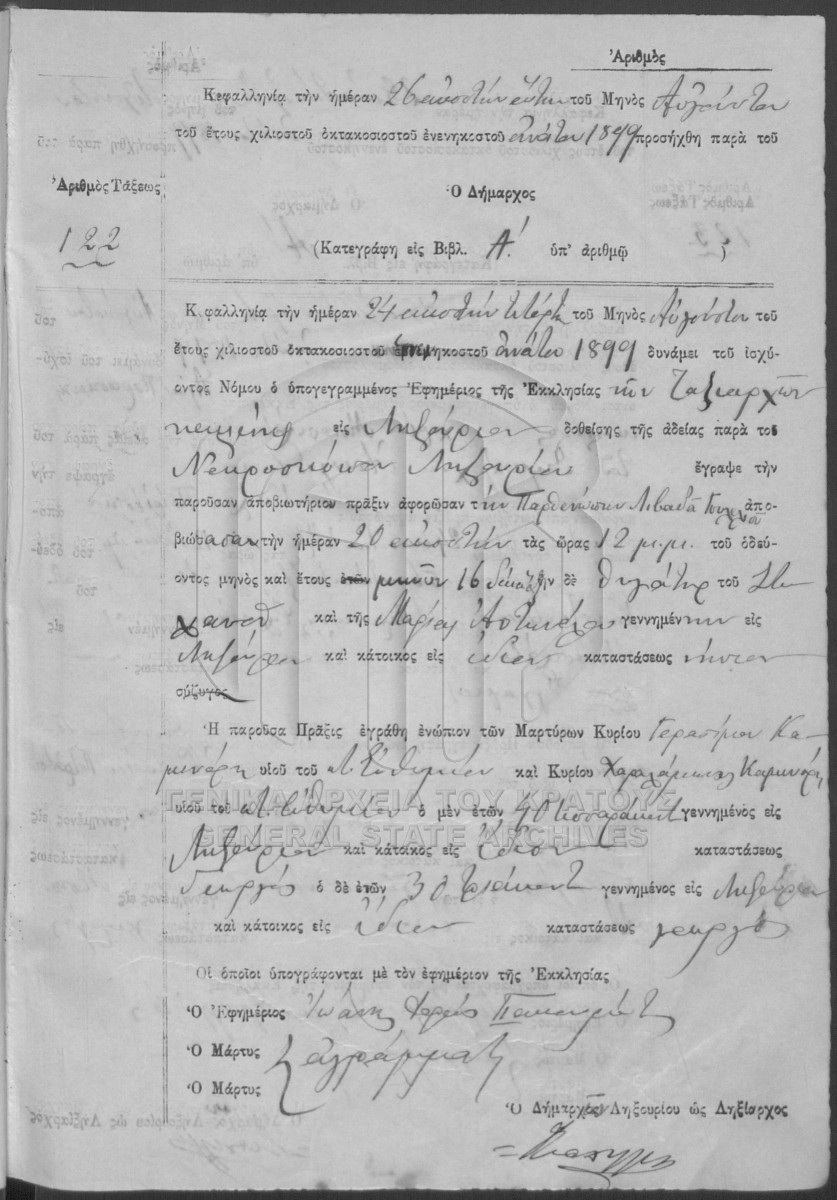 Ἀριθμὸς
Κεφαλληνία τὴν ἡμέραν 26 εἰκοστὴν ἕκτην τοῦ Μηνὸς Αὐγούστου
τοῦ ἔτους χιλιοστοῦ ὀκτακοσιοστοῦ ἐνενηκοστοῦ ἐνάτου 1899 προσήχθη παρὰ τοῦ
Ἀριθμὸς Τάξεως
Ὁ Δήμαρχος
122
(Κατεγράφη εἰς Βιβλ. Α΄. ὑπ' ἀριθμῷ )
Κεφαλληνία τὴν ἡμέραν 24 εἰκοστὴν τετάρτη τοῦ Μηνὸς Αὐγούστου τοῦ
ἔτους χιλιοστοῦ ὀκτακοσιοστοῦ ἐνενηκοστοῦ ἐνάτου 1899 δυνάμει τοῦ ἰσχύ-
οντος Νόμου ὁ ὑπογεγραμμένος Ἐφημέριος τῆς Ἐκκλησίας τῶν Ταξιαρχῶν
κειμένης εἰς Ληξούριον δοθείσης τῆς ἀδείας παρὰ τοῦ
Νεκροσκόπου Ληξουρίου ἔγραψε τὴν
παροῦσαν ἀποβιωτήριον πρᾶξιν ἀφορῶσαν τὴν Παρθενόπην Λιβαδᾶ ἀπο-
βιώσασαν τὴν ἡμέραν 20 εἰκοστὴν τὰς ὥρας 12 μ.μ. τοῦ ὁδεύ-
οντος μηνὸς καὶ ἔτους ἐτῶν μηνῶν 16 δεκαέξ ἦν δὲ θυγάτηρ τοῦ Στε
φανοῦ καὶ τῆς Μαρίας γεννημένην εἰς
Ληξούρι καὶ κάτοικος εἰς ἴδιον καταστάσεως νήπιον
σύζυγος
Ἡ παροῦσα Πρᾶξις ἐγράφη ἐνώπιον τῶν Μαρτύρων Κυρίου Γερασίμου Κα-
μινάρη υἱοῦ τοῦ Εὐθυμίου καὶ Κυρίου Χαραλάμπους Καμινάρη
υἱοῦ τοῦ Εὐθυμίου ὁ μὲν ἐτῶν 40 τεσσαράκοντ γεννημένος εἰς
Ληξούριον καὶ κάτοικος εἰς ἴδιον καταστάσεως
Γεωργὸς ὁ δὲ ἐτῶν 30 τριάκοντ γεννημένος εἰς Ληξούριον
καὶ κάτοικος εἰς ἴδιον καταστάσεως γεωργὸς
Οἱ ὁποῖοι ὑπογράφονται μὲ τὸν ἐφημέριον τῆς Ἐκκλησίας
Ὁ Ἐφημέριος Ἰωάνης Ἱερεὺς
Ὁ Μάρτυς ἀγράμματοι
Ὁ Μάρτυς
Ὁ Δήμαρχος Ληξουρίου ὡς Ληξίαρχος
ΓΕΝΙΚΑ ΑΡΧΕΙΑ ΤΟΥ ΚΡΑΤΟΥΣ
GENERAL STATE ARCHIVES